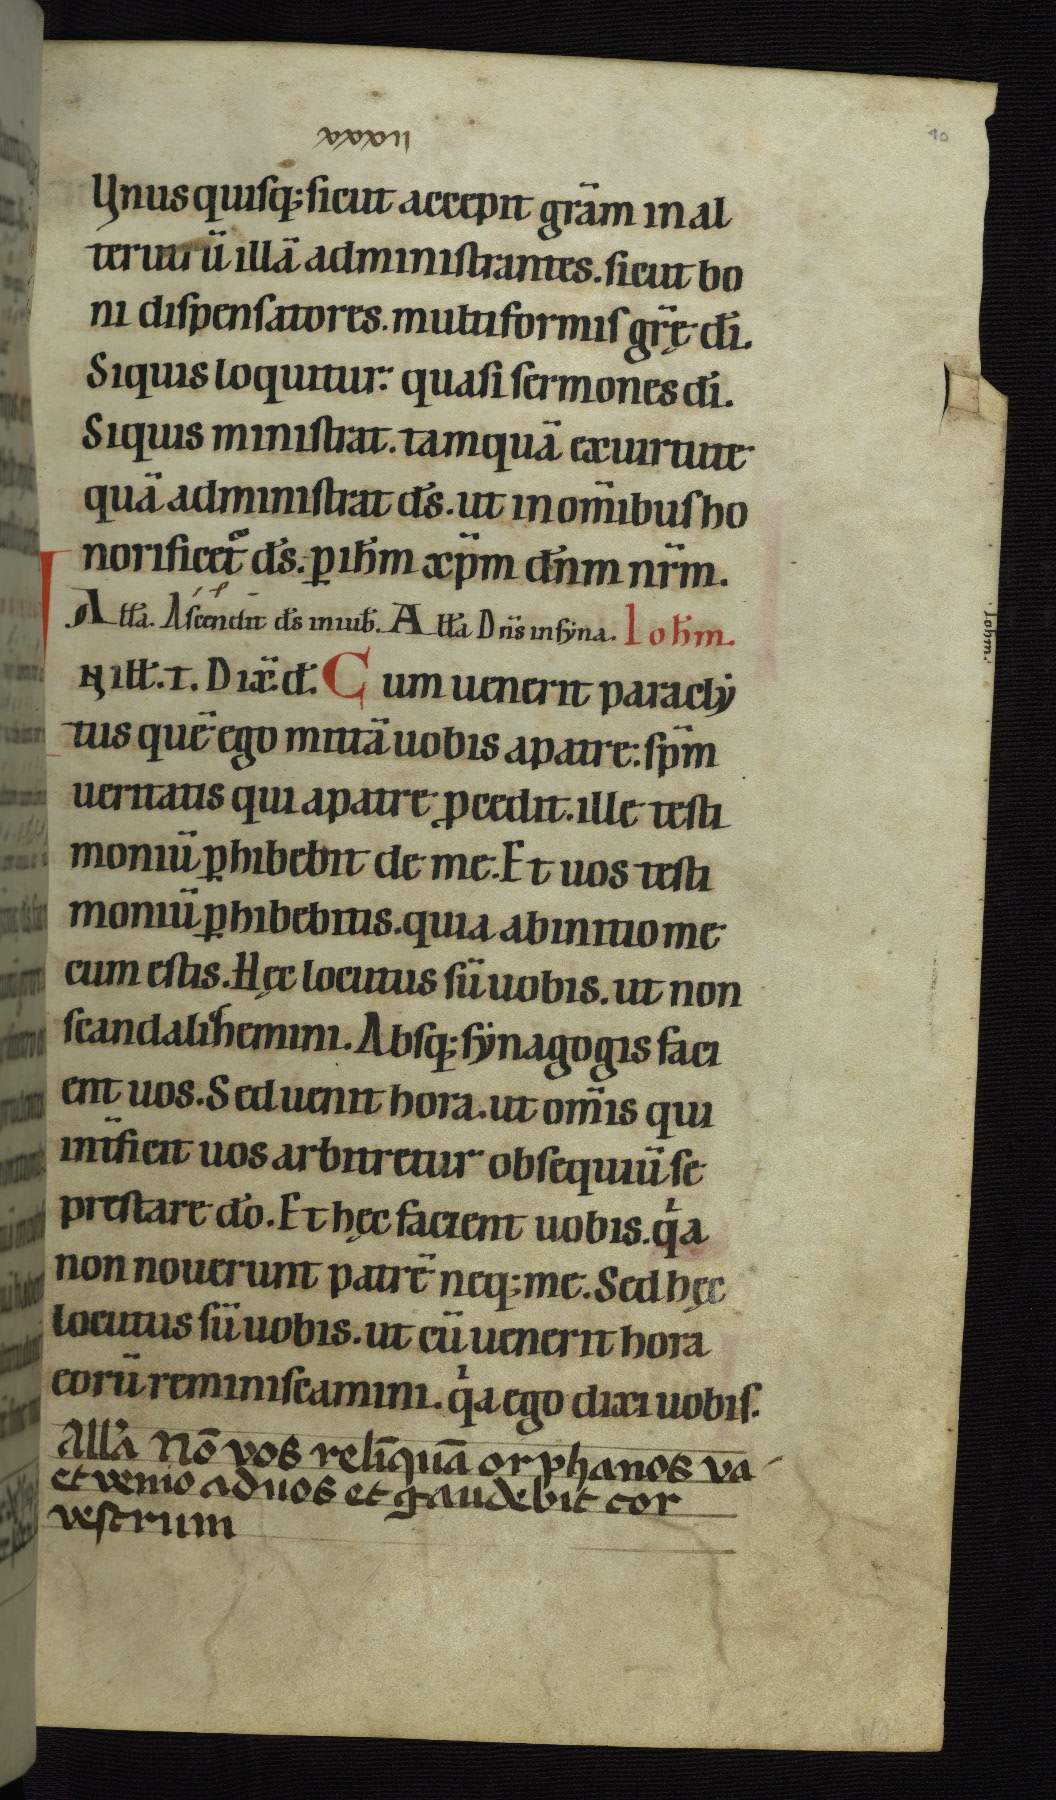 xxxvii
40
Vnus quisq; sicut accepit gr̄am in al
teru ū illā administrantes. sicut bo
ni dispensatores. multiformis gr̄ę dī.
Siquis loquitur: quasi sermones dī.
Siquis ministrat. tamquā exuirtute
quā administrat d̄s. ut in om̄ibus ho
norificet᷑ d̄s. ꝑ ih̄m xp̄m dn̄m nr̄m.
Ałła. Ascendit d̄s in iub̄. Aƚƚa Dn̄s in syna. Ioh̄m.
Iohm.
N iƚƚ. T. Dix̄. d̄. Cum uenerit paracly
tus quē ego mittā uobis a patre: sp̄m
ueritatis qui a patre ꝓcedit. ille testi
moniū ꝑhibebit de me. Et uos testi
moniū ꝑhibebitis. quia ab initio me
cum estis. Hęc locutus sū uobis. ut non
scandalihemini. Absq; synagogis faci
ent uos. Sed uenit hora. ut om̄is qui
int̄ficit uos arbitretur obsequiū se
prestare dō. Et hęc facient uobis. qⁱa
non nouerunt patrē neq; me. Sed hęc
locutus sū uobis. ut cū uenerit hora
eorū reminiscamini. qⁱa ego dixi uobis.
All'a Nō vos relīquā orphanos va
et venio ad uos et gaudebit cor
vestrum